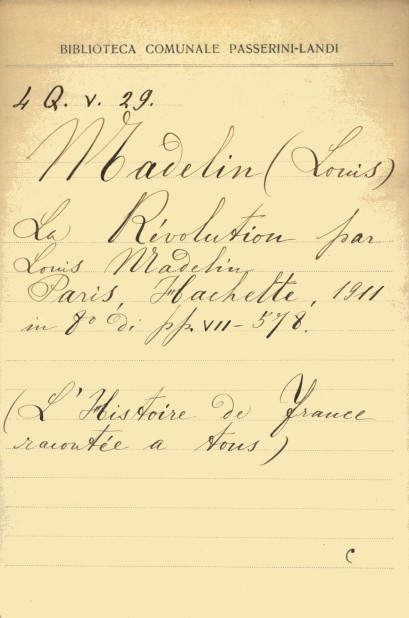 BIBLIOTECA COMUNALE PASSERINI-LANDI
4 Q. V. 29.
Madelin (Louis)
La Révolution par
Louis Madelin
Paris, Hachette, 1911
in 8º di pp. VII-578.
(L'Histoire de France
racontée a tous)
C